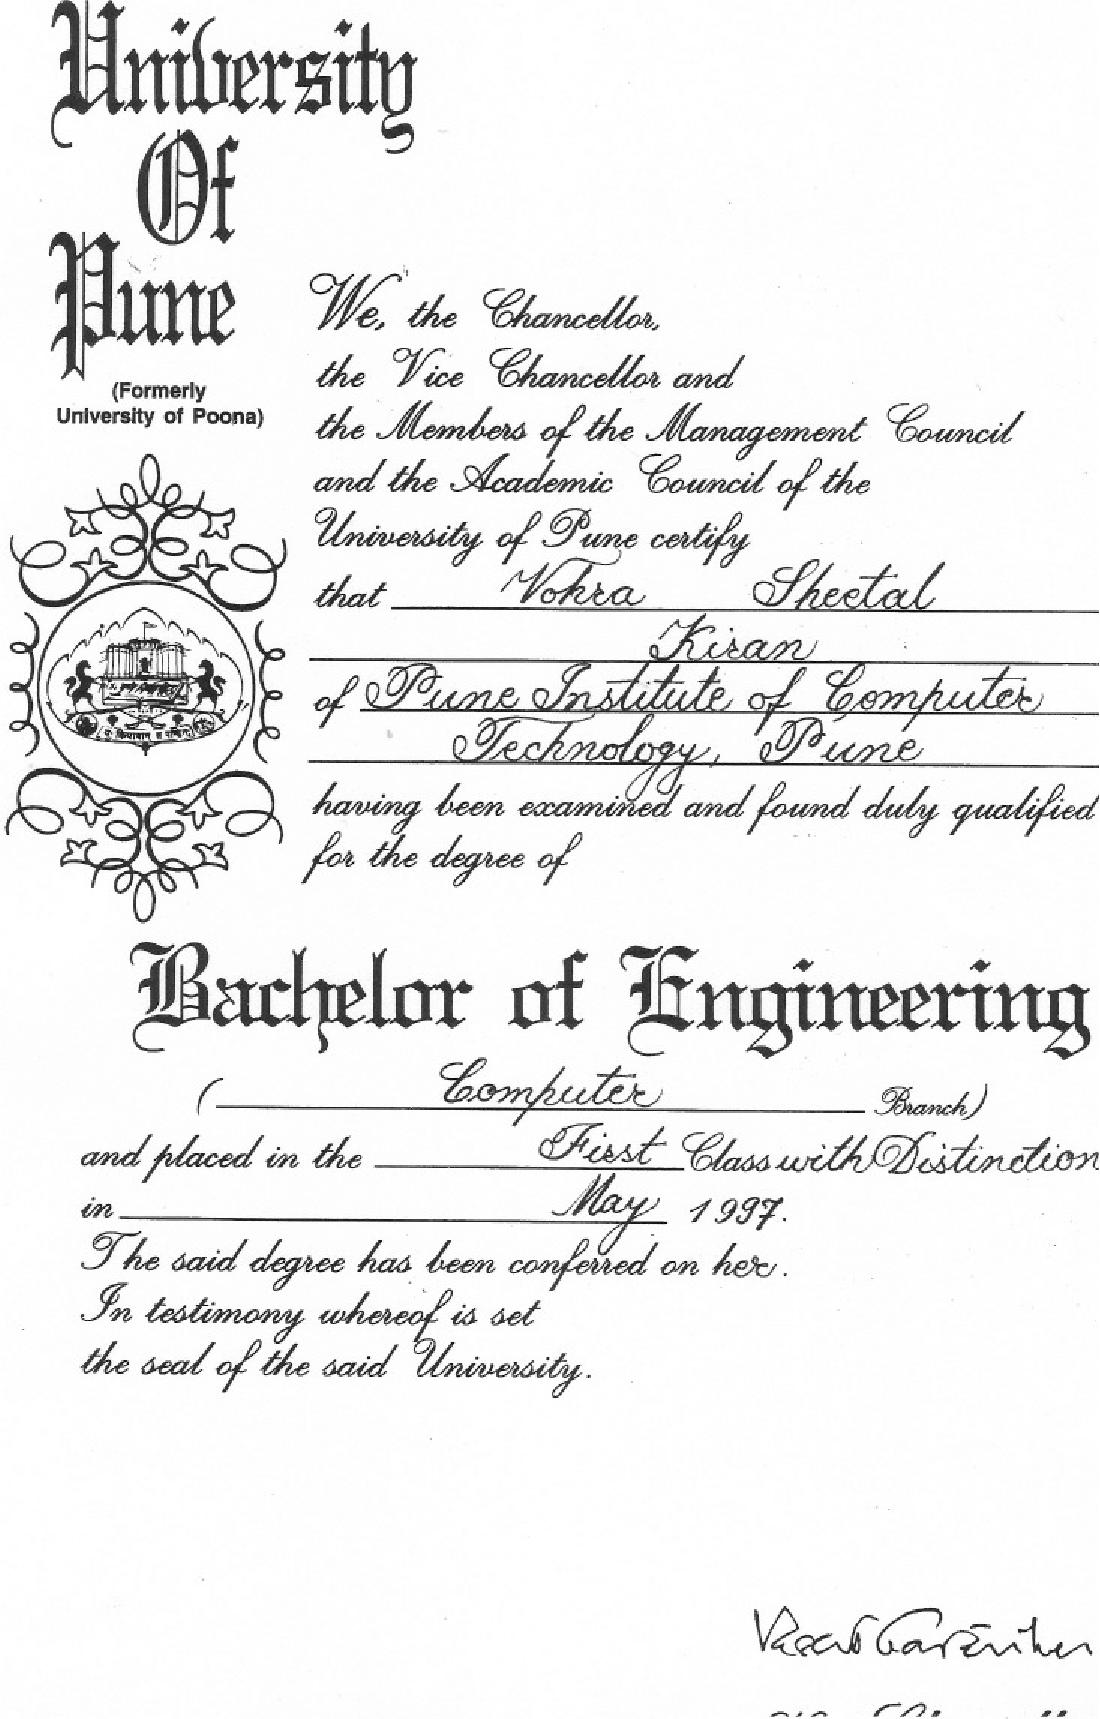 University
Of
Pune
(Formerly
University of Poona)
We, the Chancellor,
the Vice Chancellor and
the Members of the Management Council
and the Academic Council of the
University of Pune certify
that Vohra Sheetal
Kiran
of Pune Institute of Computer
Technology, Pune
having been examined and found duly qualified
for the degree of
Bachelor of Engineering
(Computer Branch)
and placed in the First Class with Distinction
in May 1997.
The said degree has been conferred on her.
In testimony whereof is set
the seal of the said University.